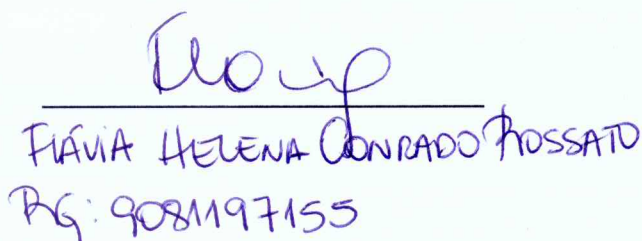 Flávia
FLÁVIA HELENA CONRADO ROSSATO
RG: 9081197155